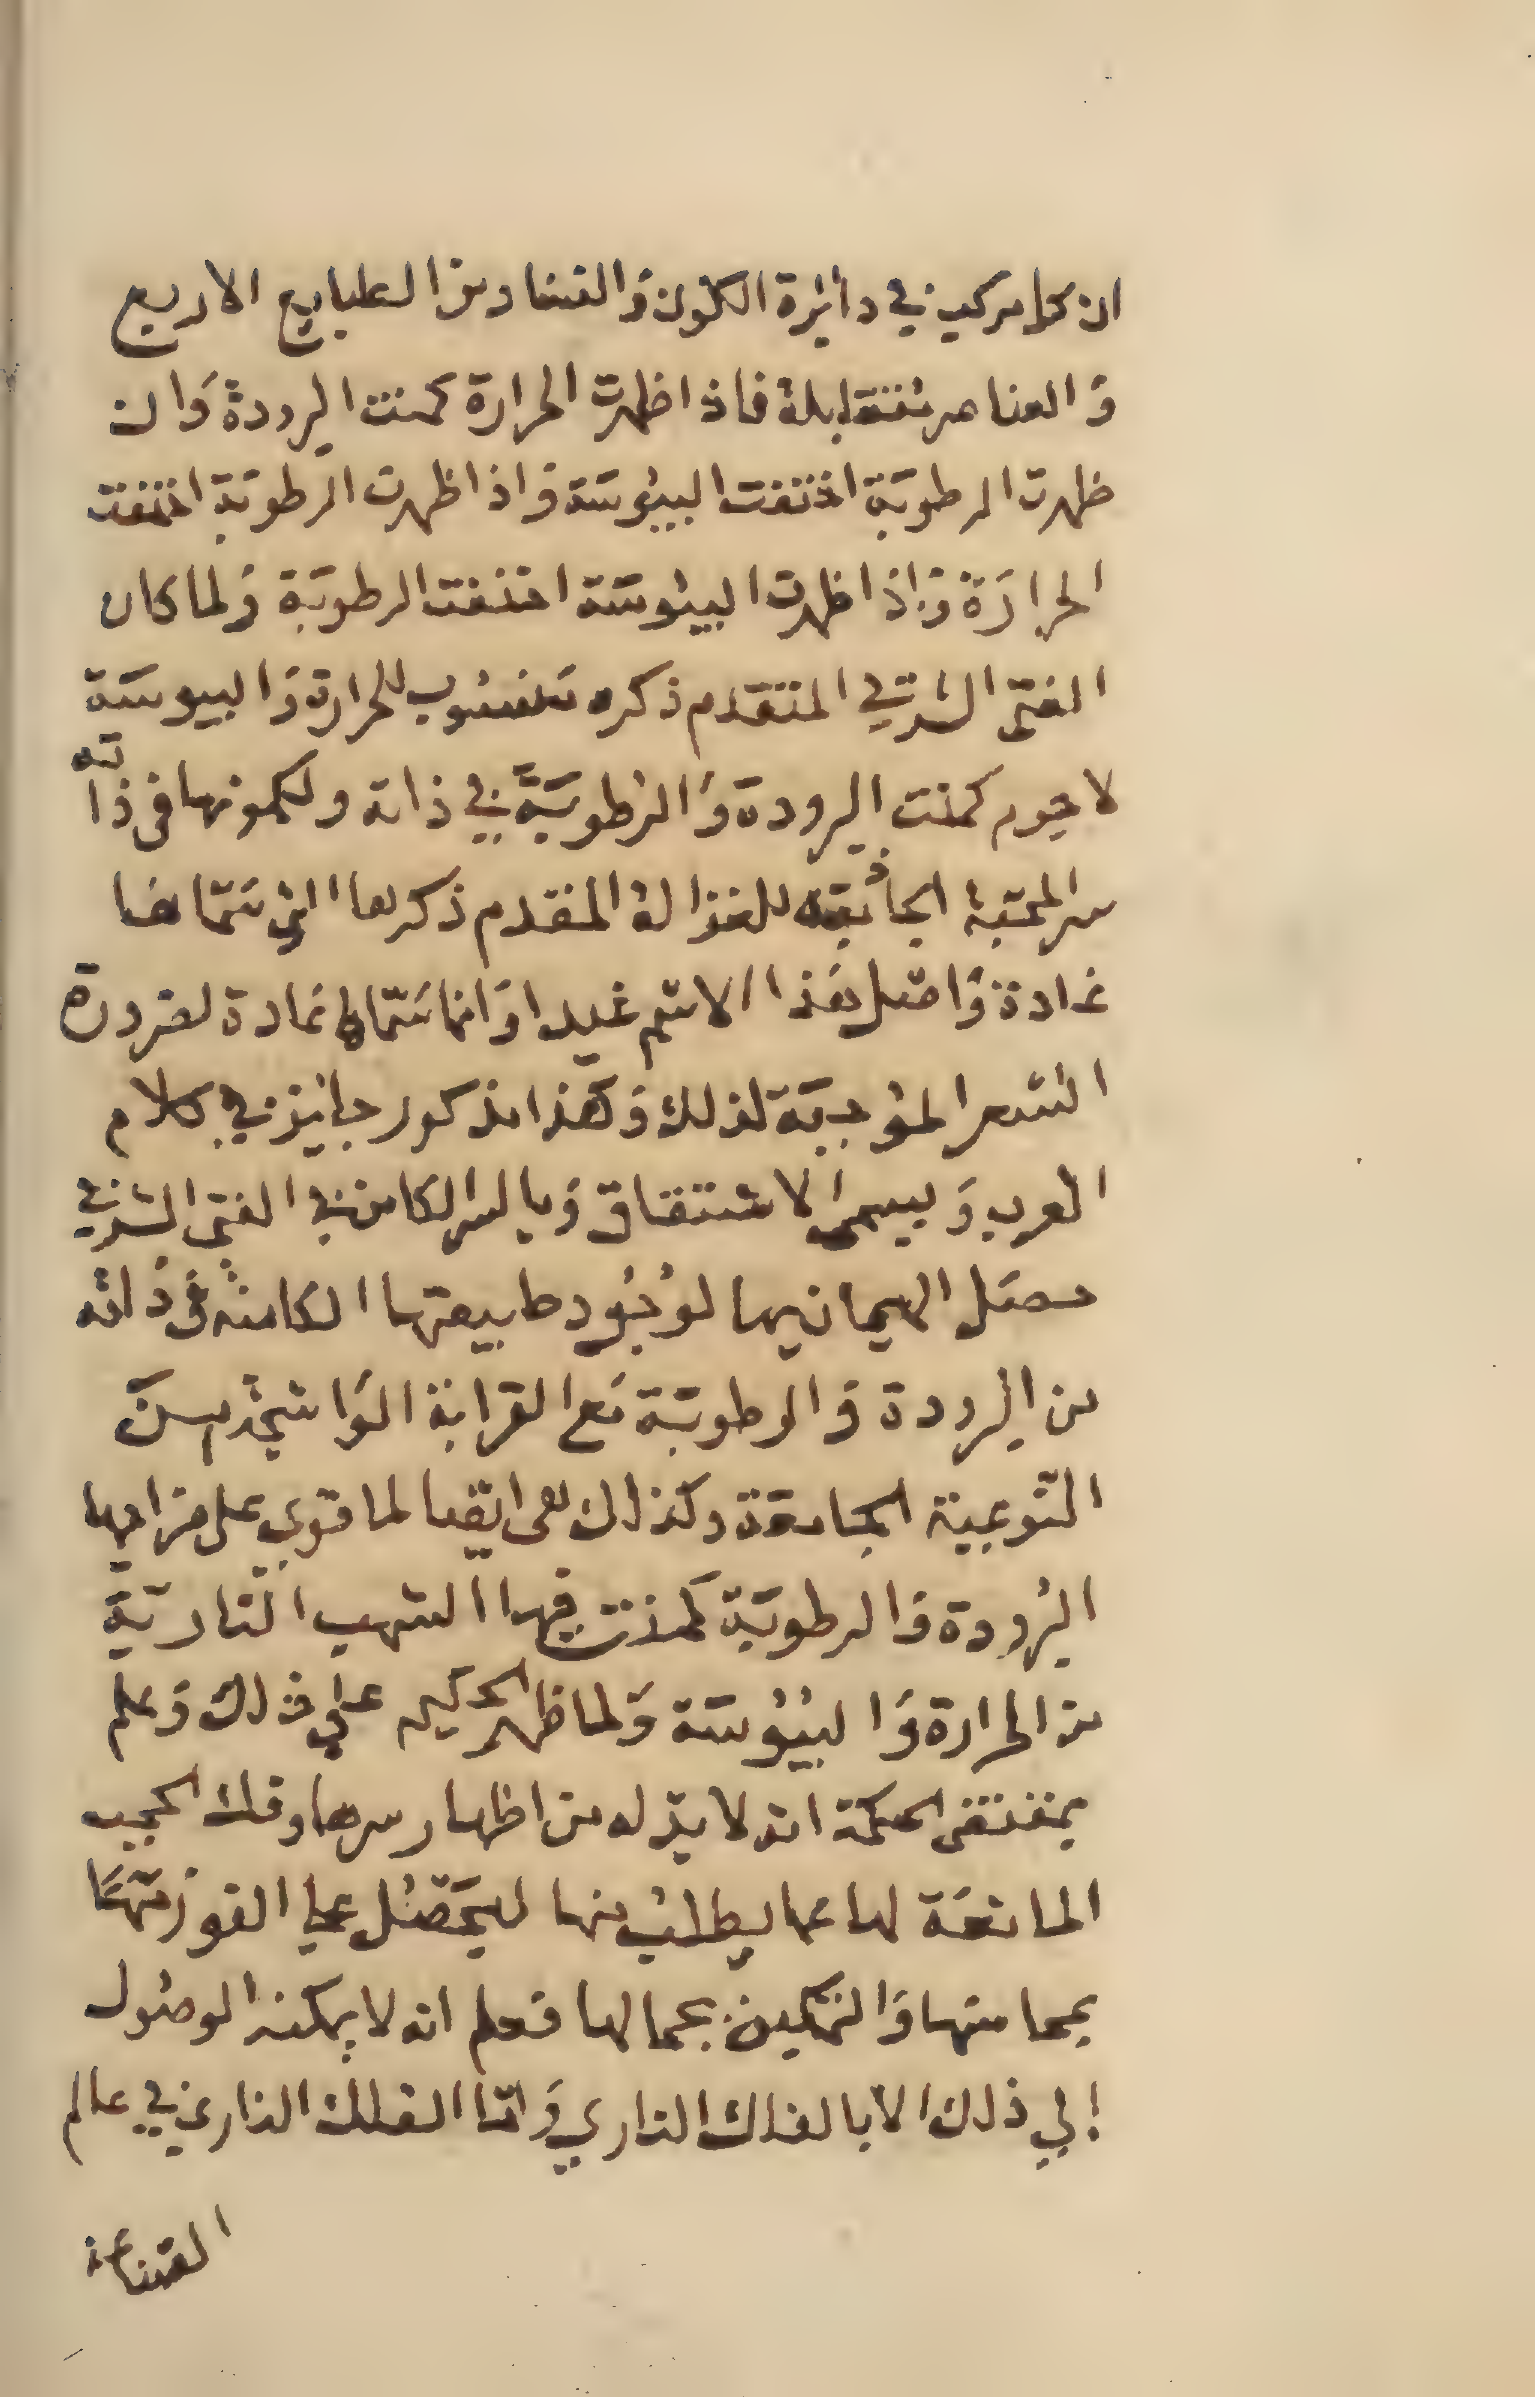 ان كل مركب في دائرة الكون والفساد من الطبايع الاربع
والعناصر متقابلة فاذا ظهرت الحرارة كمنت البرودة وان
ظهرت الرطوبة اختفت اليبوسة واذا ظهرت الرطوبة اختفت
الحرارة واذا ظهرت اليبوسة اختفت الرطوبة ولما كان
الفتى الشرقي المتقدم ذكره منسوب للحرارة واليبوسة
لا جرم كمنت البرودة والرطوبة في ذاته ولكمونها في ذاته
سر المحبة الجاذبة للغزالة المقدم ذكرها التي سماها
غادة واصل هذا الاسم غيدا وانما سماها غادة لضرورة
الشعر الموجبة لذلك وهذا مذكور جايز في كلام
العرب ويسمى الاشتقاق وبالسر الكامن في الفتى الشرقي
حصل الهيمان بها لوجود طبيعتها الكامنة في ذاته
من البرودة والرطوبة مع القرابة الواشجة بسن
النوعية الجامعة وكذلك هى ايضا لما قوي على مزاجها
البرودة والرطوبة كمنت فيها الشهب النارية
من الحرارة واليبوسة ولما ظهر الحكيم على ذلك وعلم
بمقتضى الحكمة انه لا بد له من اظهار سرها وفك الحجب
المانعة لها عما يطلب منها ليحصل على الفوز منها
بمحاسنها والتمكين بجمالها فعلم انه لا يمكنه الوصول
إلي ذلك الا بالفلك الناري وَاما الفلك الناري في عالم
الصناعة